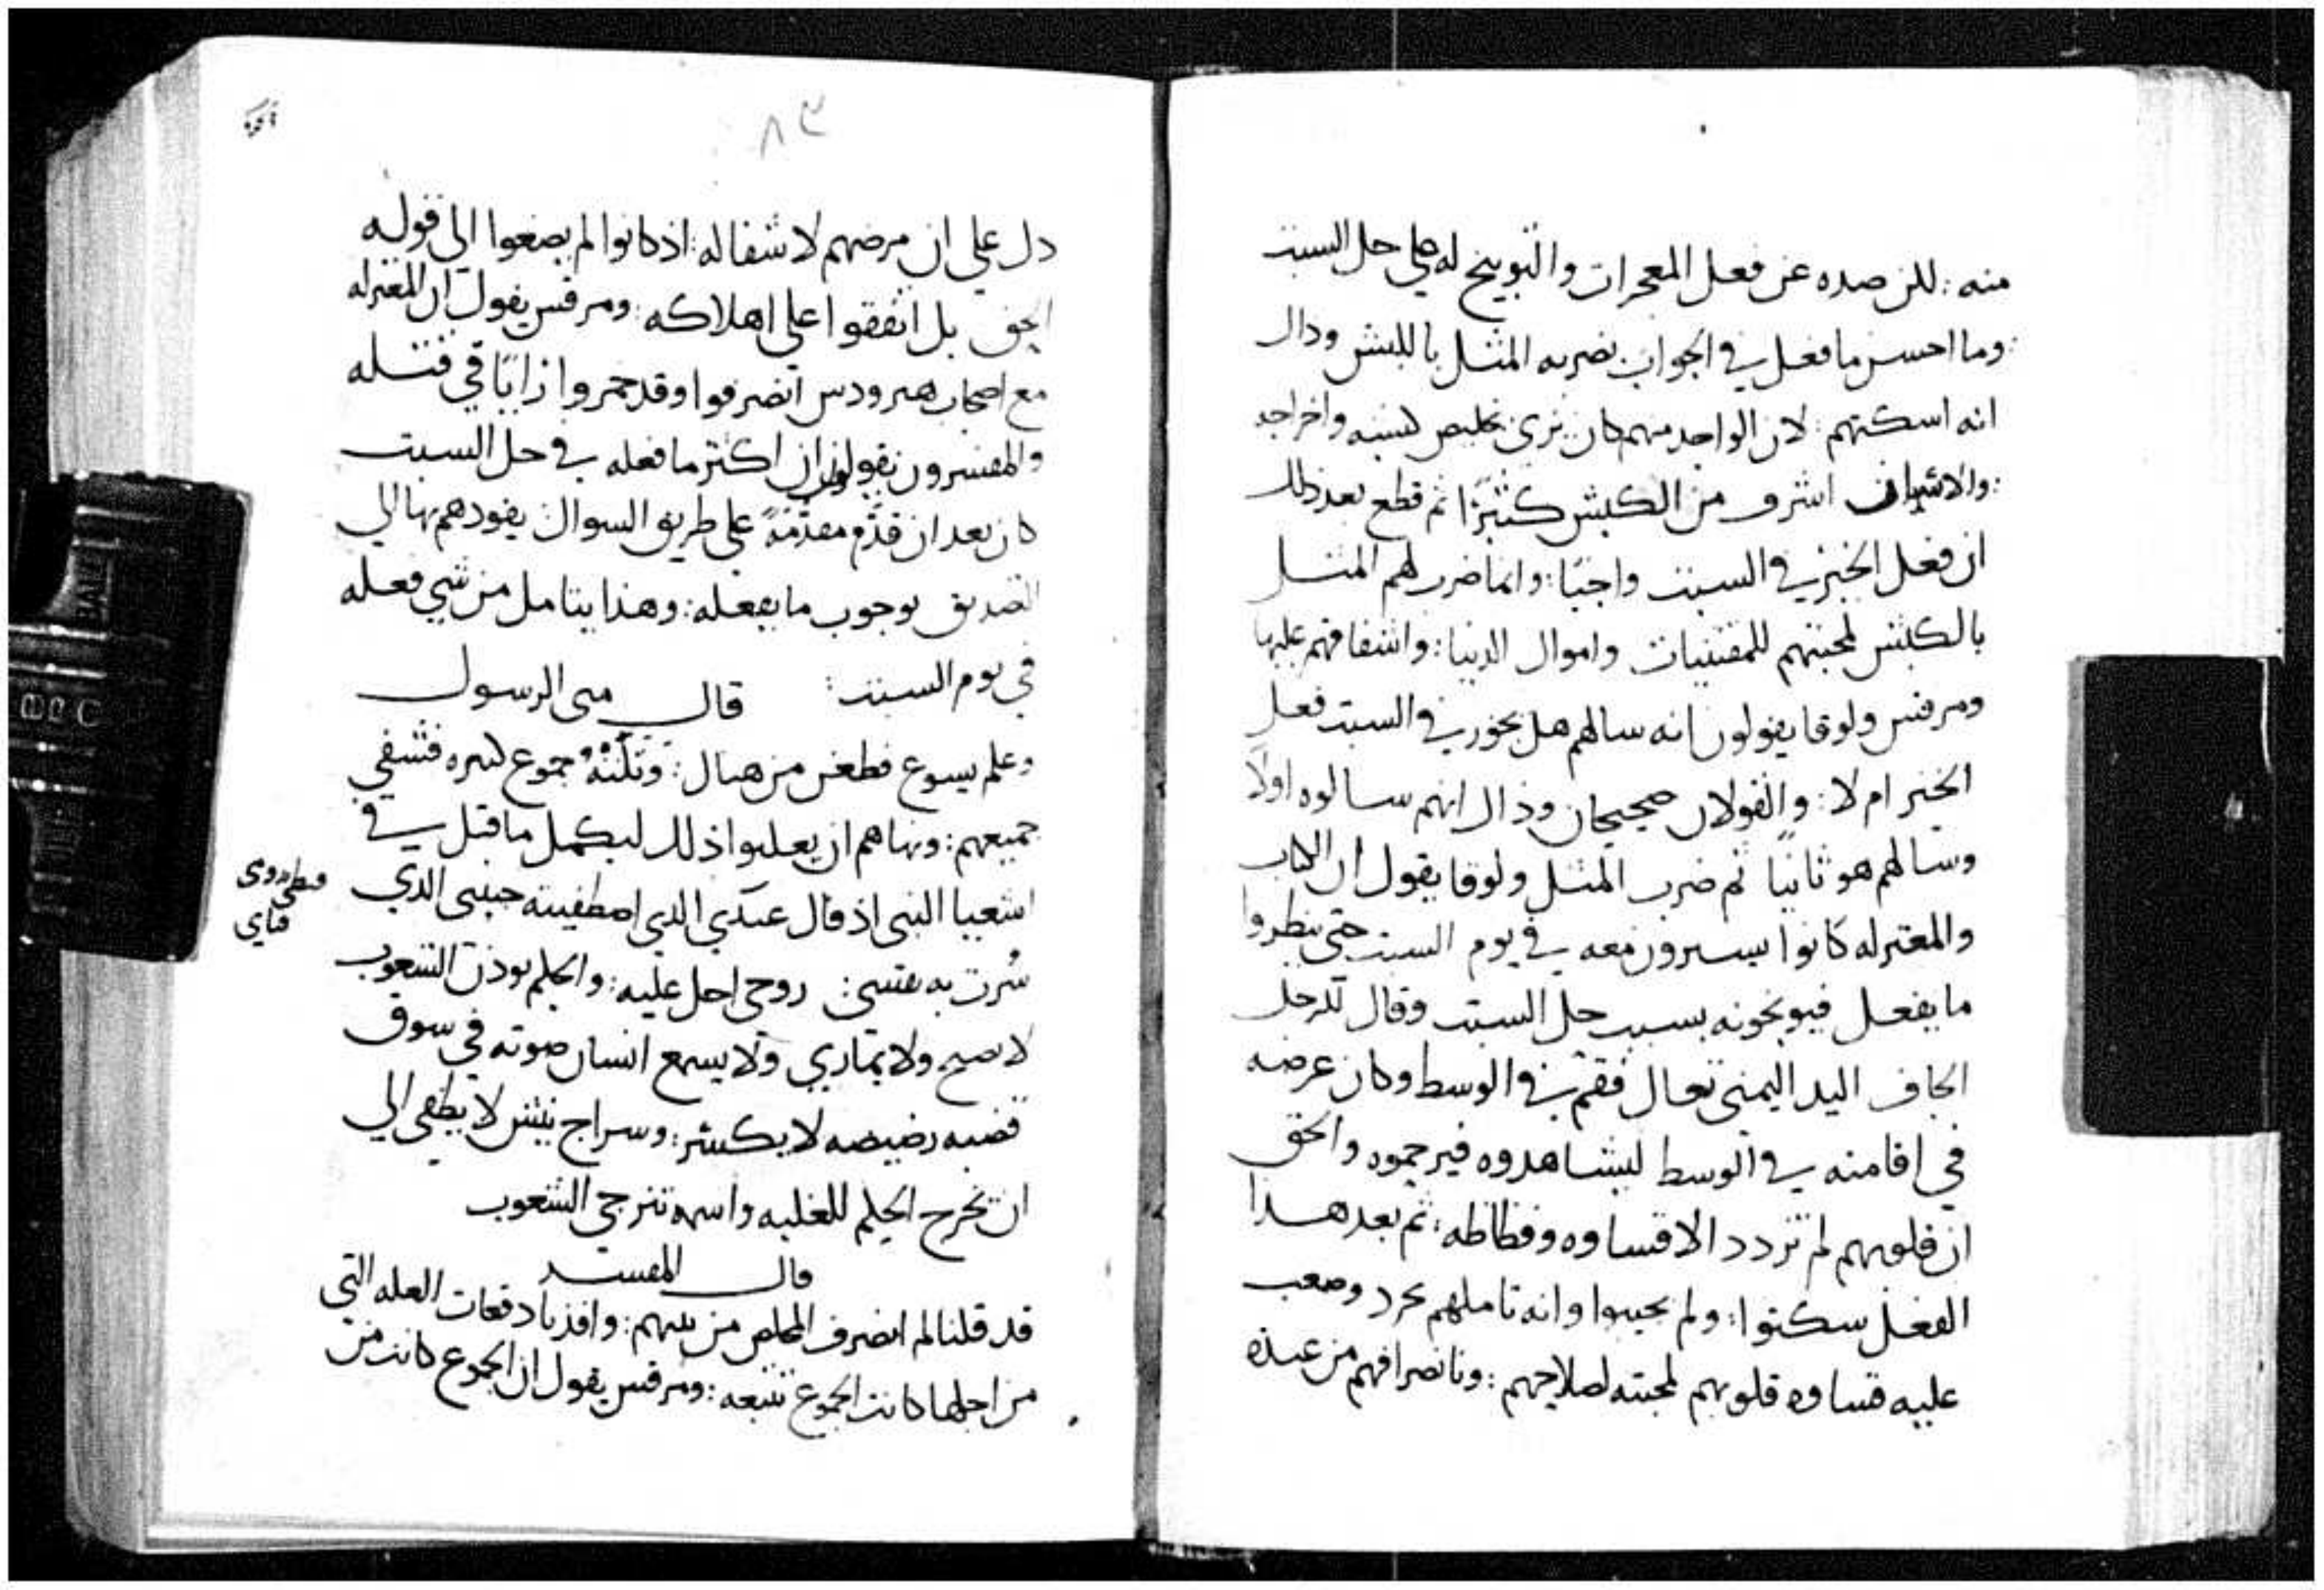 منه: لكن صده عن فعل المعجزات والتوبيخ له على حل السبت
وما احسن ما فعل في الجواب بضربه المثل بالكبش وذاك
انه اسكتهم: لان الواحد منهم كان يرى تخليص كبشه واخراجه
والانسان اشرف من الكبش كثيرًا ثم قطع بعد ذلك
ان فعل الخير في السبت واجبًا: وانما ضرب لهم المثل
بالكبش لمحبتهم للمقتنيات واموال الدنيا: واشفاقهم عليها
ومرقس ولوقا يقولون انه سالهم هل يجوز في السبت فعل
الخير ام لا: والقولان صحيحان وذاك انهم سالوه اولًا
وسالهم هو ثانيًا ثم ضرب المثل ولوقا يقول ان الكتاب
والمعتزله كانوا يسيرون معه في يوم السبت حتى ينظروا
ما يفعل فيوبخونه بسبب حل السبت وقال للرجل
الجاف اليد اليمنى تعال فقم في الوسط وكان غرضه
في اقامته في الوسط ليشاهدوه فيرحموه والحق
ان قلوبهم لم تزدد الا قساوه وفظاظه: ثم بعد هذا
الفعل سكتوا: ولم يجيبوا وانه تاملهم بحرد وصعب
عليه قساوة قلوبهم لمحبته لصلاحهم: وبانصرافهم من عنده
٨٣
دل على ان مرضهم لا شفا له: اذ كانوا لم يصغوا الى قوله
الحق بل اتفقوا على اهلاكه: ومرقس يقول ان المعتزله
مع اصحاب هيرودس انصرفوا وقد خمروا رايًا في قتله
والمفسرون يقولون ان اكثر ما فعله في حل السبت
كان بعد ان قدّم مقدّمةً على طريق السوال يقودهم بها الى
التصديق بوجوب ما يفعله: وهذا يتامل من شي فعله
في يوم السبت: قال متى الرسول
وعلم يسوع فطعن من هناك: وتلته جموع كثيره فشفى
جميعهم: ونهاهم ان يعلنوا ذلك ليكمل ما قيل في
اشعيا النبي اذ قال عبدي الذي اصطفيته حبيبي الذي
سُرت به نفسي: روحي احل عليه: والحكم يوذن الشعوب
لا يصيح ولا يماري ولا يسمع انسان صوته في سوق
قصبه رضيضه لا يكسر: وسراج ينش لا يطفى الى
ان يخرج الحكم للغلبه واسمه تترجى الشعوب
قال المفسر
قد قلنا لم انصرف المخلص من بينهم: وافدنا دفعات العله التي
من اجلها كانت الجموع تتبعه: ومرقس يقول ان الجموع كانت من